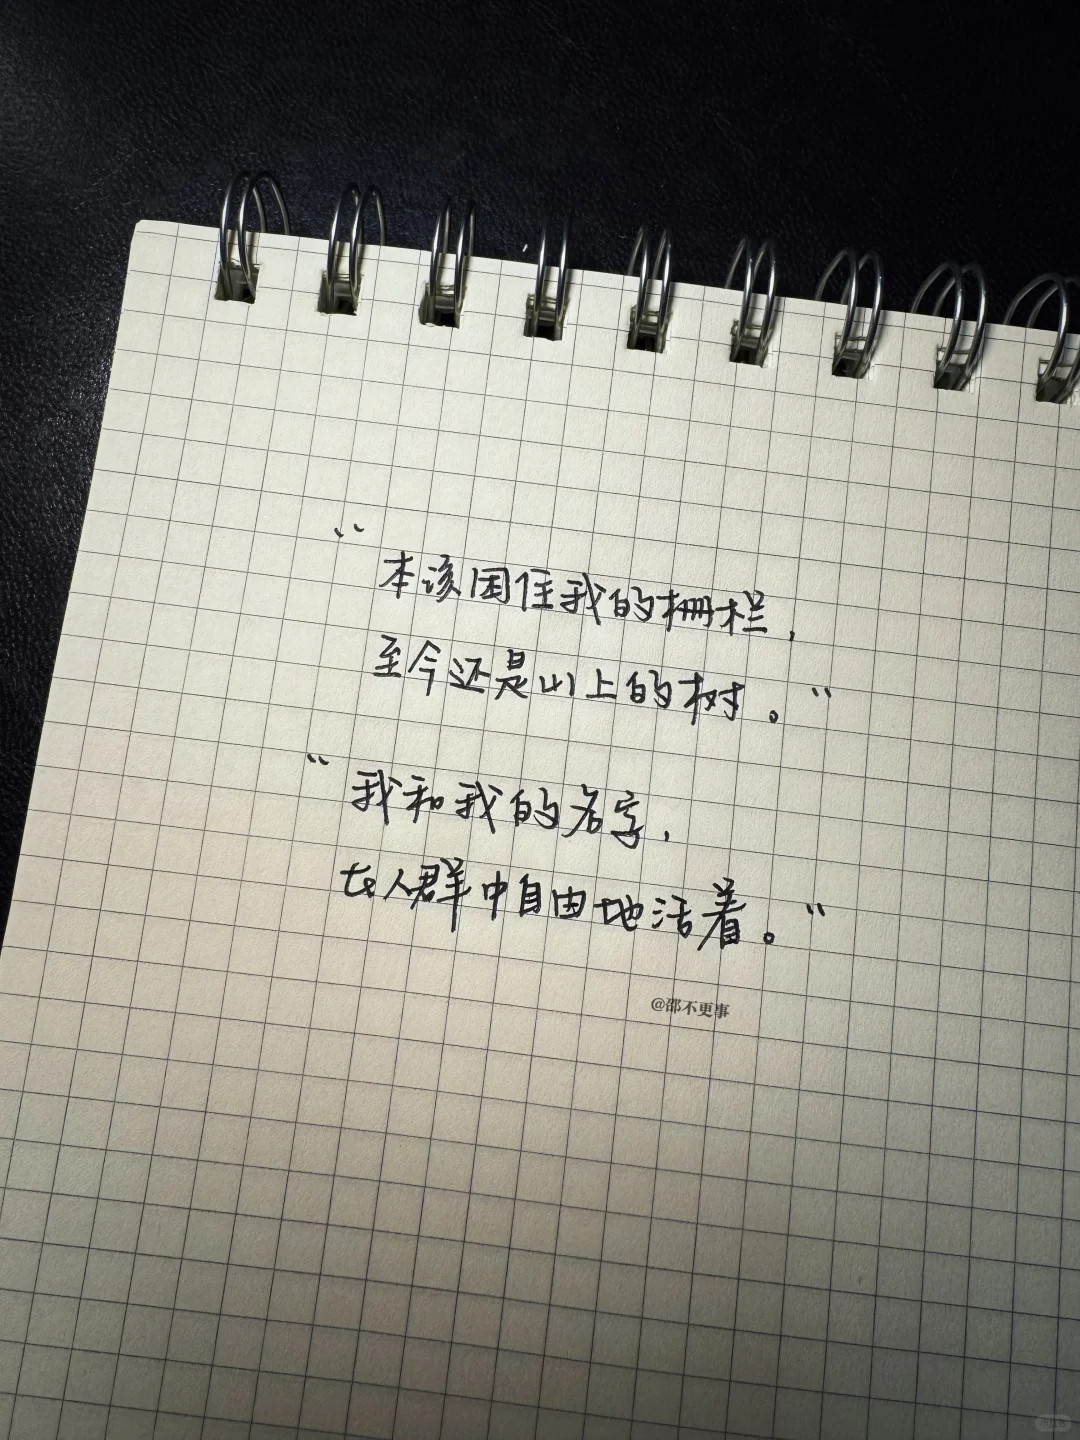 “本该困住我的栅栏，
至今还是山上的树。”
“我和我的名字，
在人群中自由地活着。”
@邵不更事